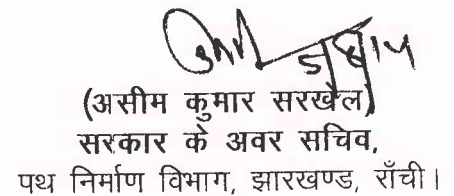 (असीम कुमार सरखैल)
सरकार के अवर सचिव,
पथ निर्माण विभाग, झारखण्ड, राँची।